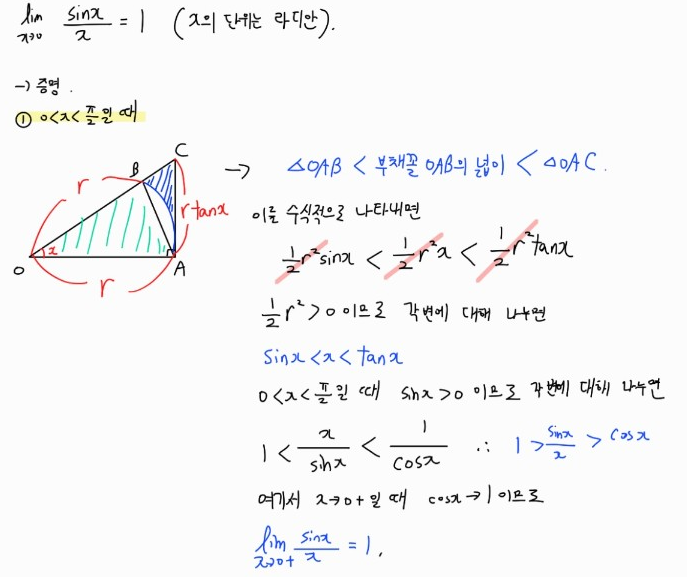 lim x→0 sinx/x = 1 (x의 단위는 라디안).
→ 증명.
① 0<x<π/2일 때
C
B
r
r tanx
x
O
A
r
→ △OAB < 부채꼴 OAB의 넓이 < △OAC.
이를 수식적으로 나타내면
1/2 r² sinx < 1/2 r² x < 1/2 r² tanx
1/2 r² > 0 이므로 각변에 대해 나누면
sinx < x < tanx
0<x<π/2일 때 sinx>0 이므로 각변에 대해 나누면
1 < x/sinx < 1/cosx ∴ 1 > sinx/x > cosx
여기서 x→0+일 때 cosx→1이므로
lim x→0+ sinx/x = 1.